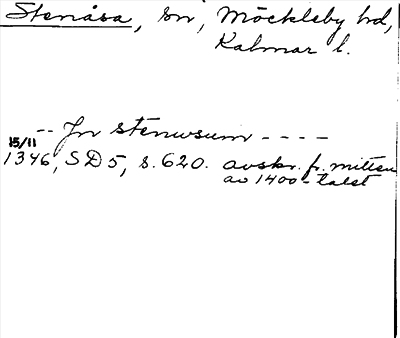 Stenåsa, sn, Möckleby hd,
Kalmar l.
-- Jn stenwsum ----
15/11
1346, SD 5, s. 620. avskr. fr. mitten
av 1400-talet